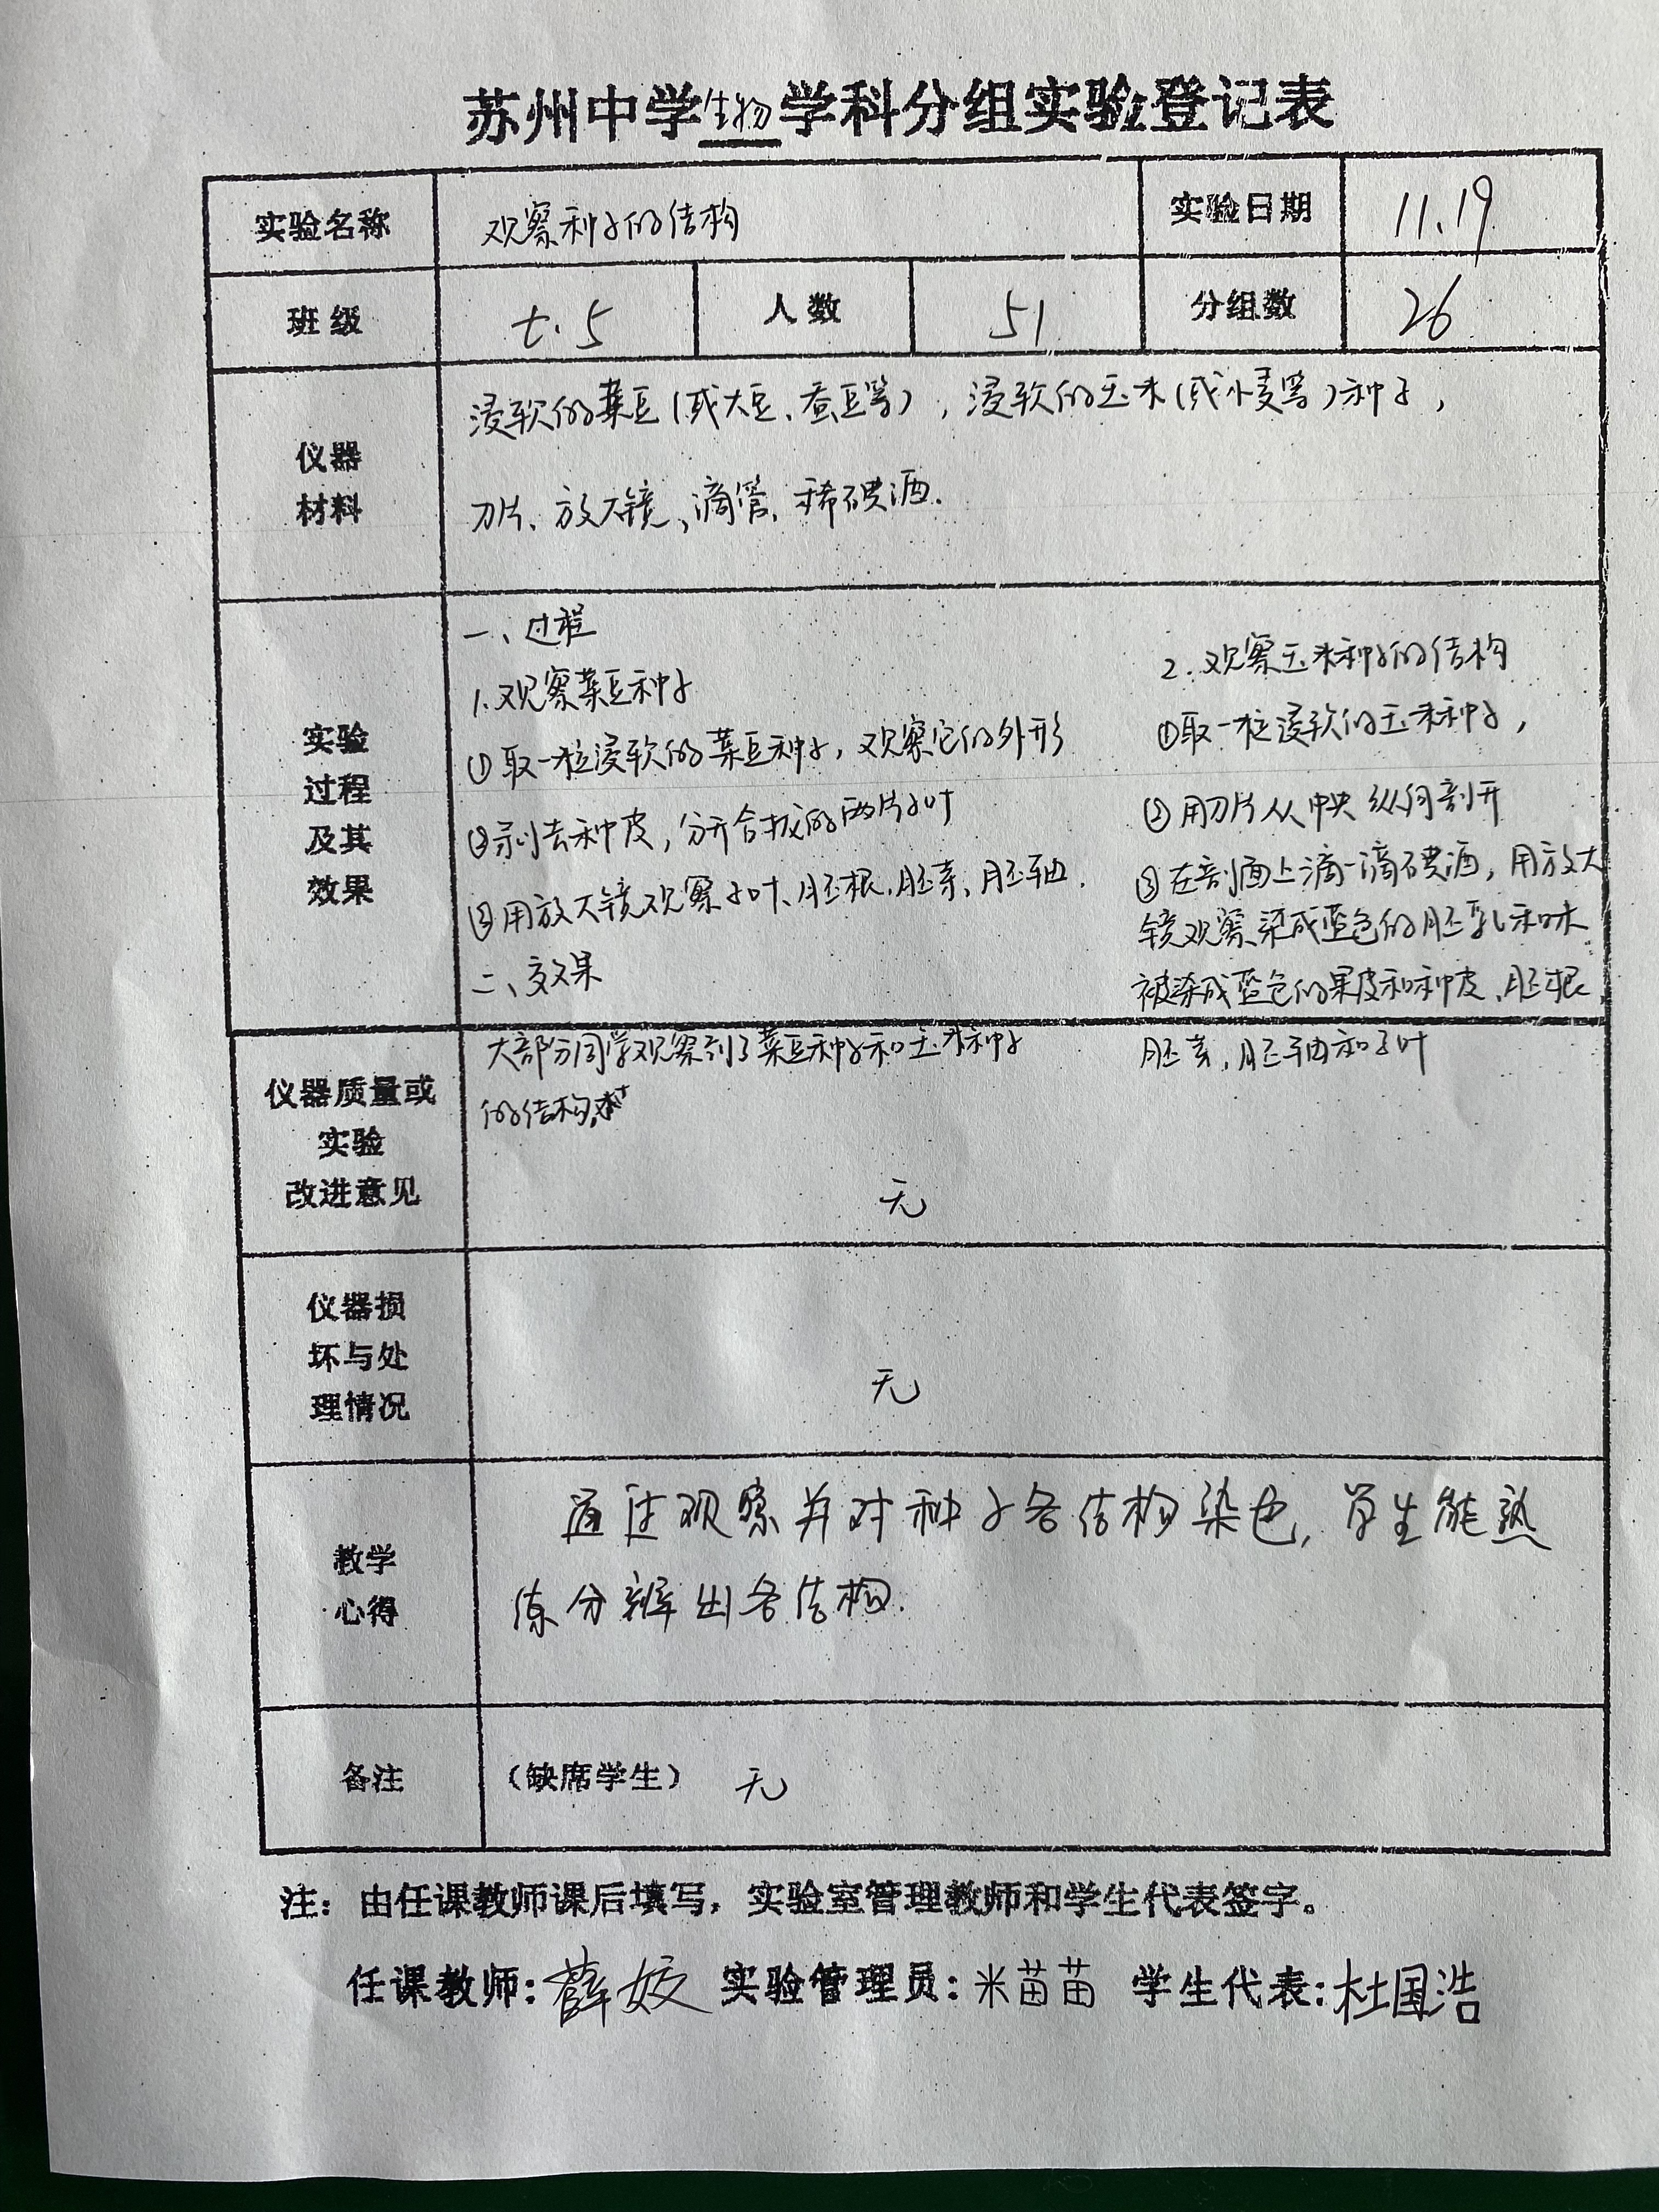 苏州中学生物学科分组实验登记表
实验名称 观察种子的结构 实验日期 11.19
班级 七.5 人数 51 分组数 26
仪器
材料
浸软的菜豆(或大豆、蚕豆等),浸软的玉米(或小麦等)种子,
刀片、放大镜、滴管、稀碘酒.
实验
过程
及其
效果
一、过程
1.观察菜豆种子
①取一粒浸软的菜豆种子,观察它的外形
②剥去种皮,分开合拢的两片子叶
③用放大镜观察子叶、胚根、胚芽、胚轴.
二、效果
大部分同学观察到了菜豆种子和玉米种子
的结构.
2.观察玉米种子的结构
①取一粒浸软的玉米种子,
②用刀片从中央纵向剖开
③在剖面上滴一滴碘酒,用放大
镜观察染成蓝色的胚乳和未
被染成蓝色的果皮和种皮、胚根、
胚芽,胚轴和子叶
仪器质量或
实验
改进意见
无
仪器损
坏与处
理情况
无
教学
心得
通过观察并对种子各结构染色,学生能熟
练分辨出各结构.
备注 (缺席学生) 无
注:由任课教师课后填写,实验室管理教师和学生代表签字。
任课教师:薛姣 实验管理员:米苗苗 学生代表:杜国浩